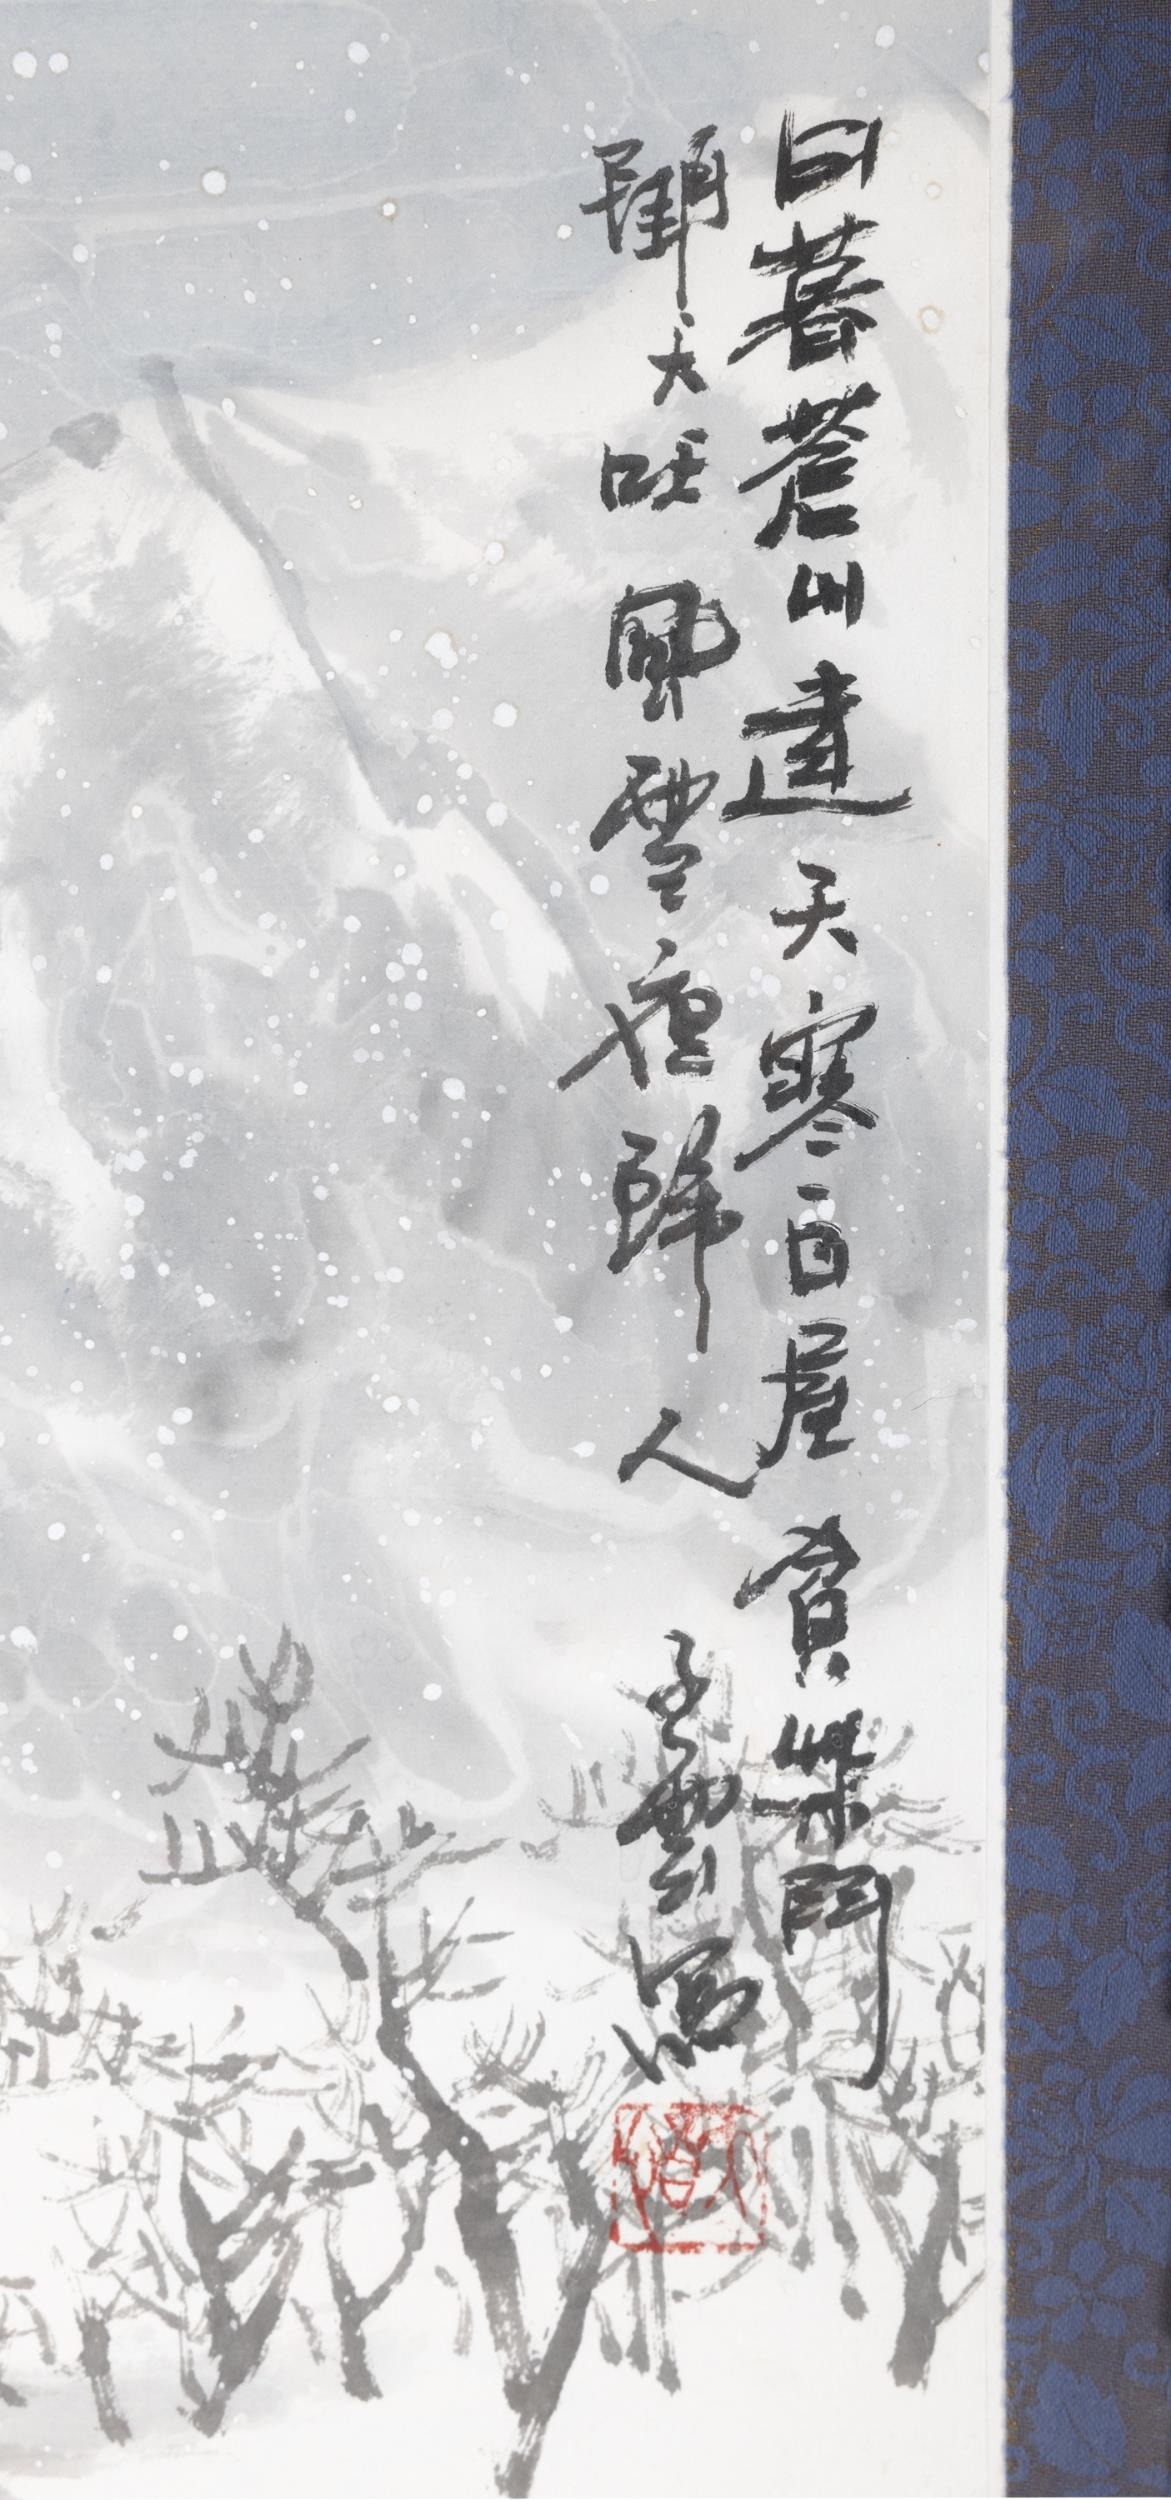 日暮蒼山遠天寒白屋貧柴門
聞犬吠風雪夜歸人 雲寫